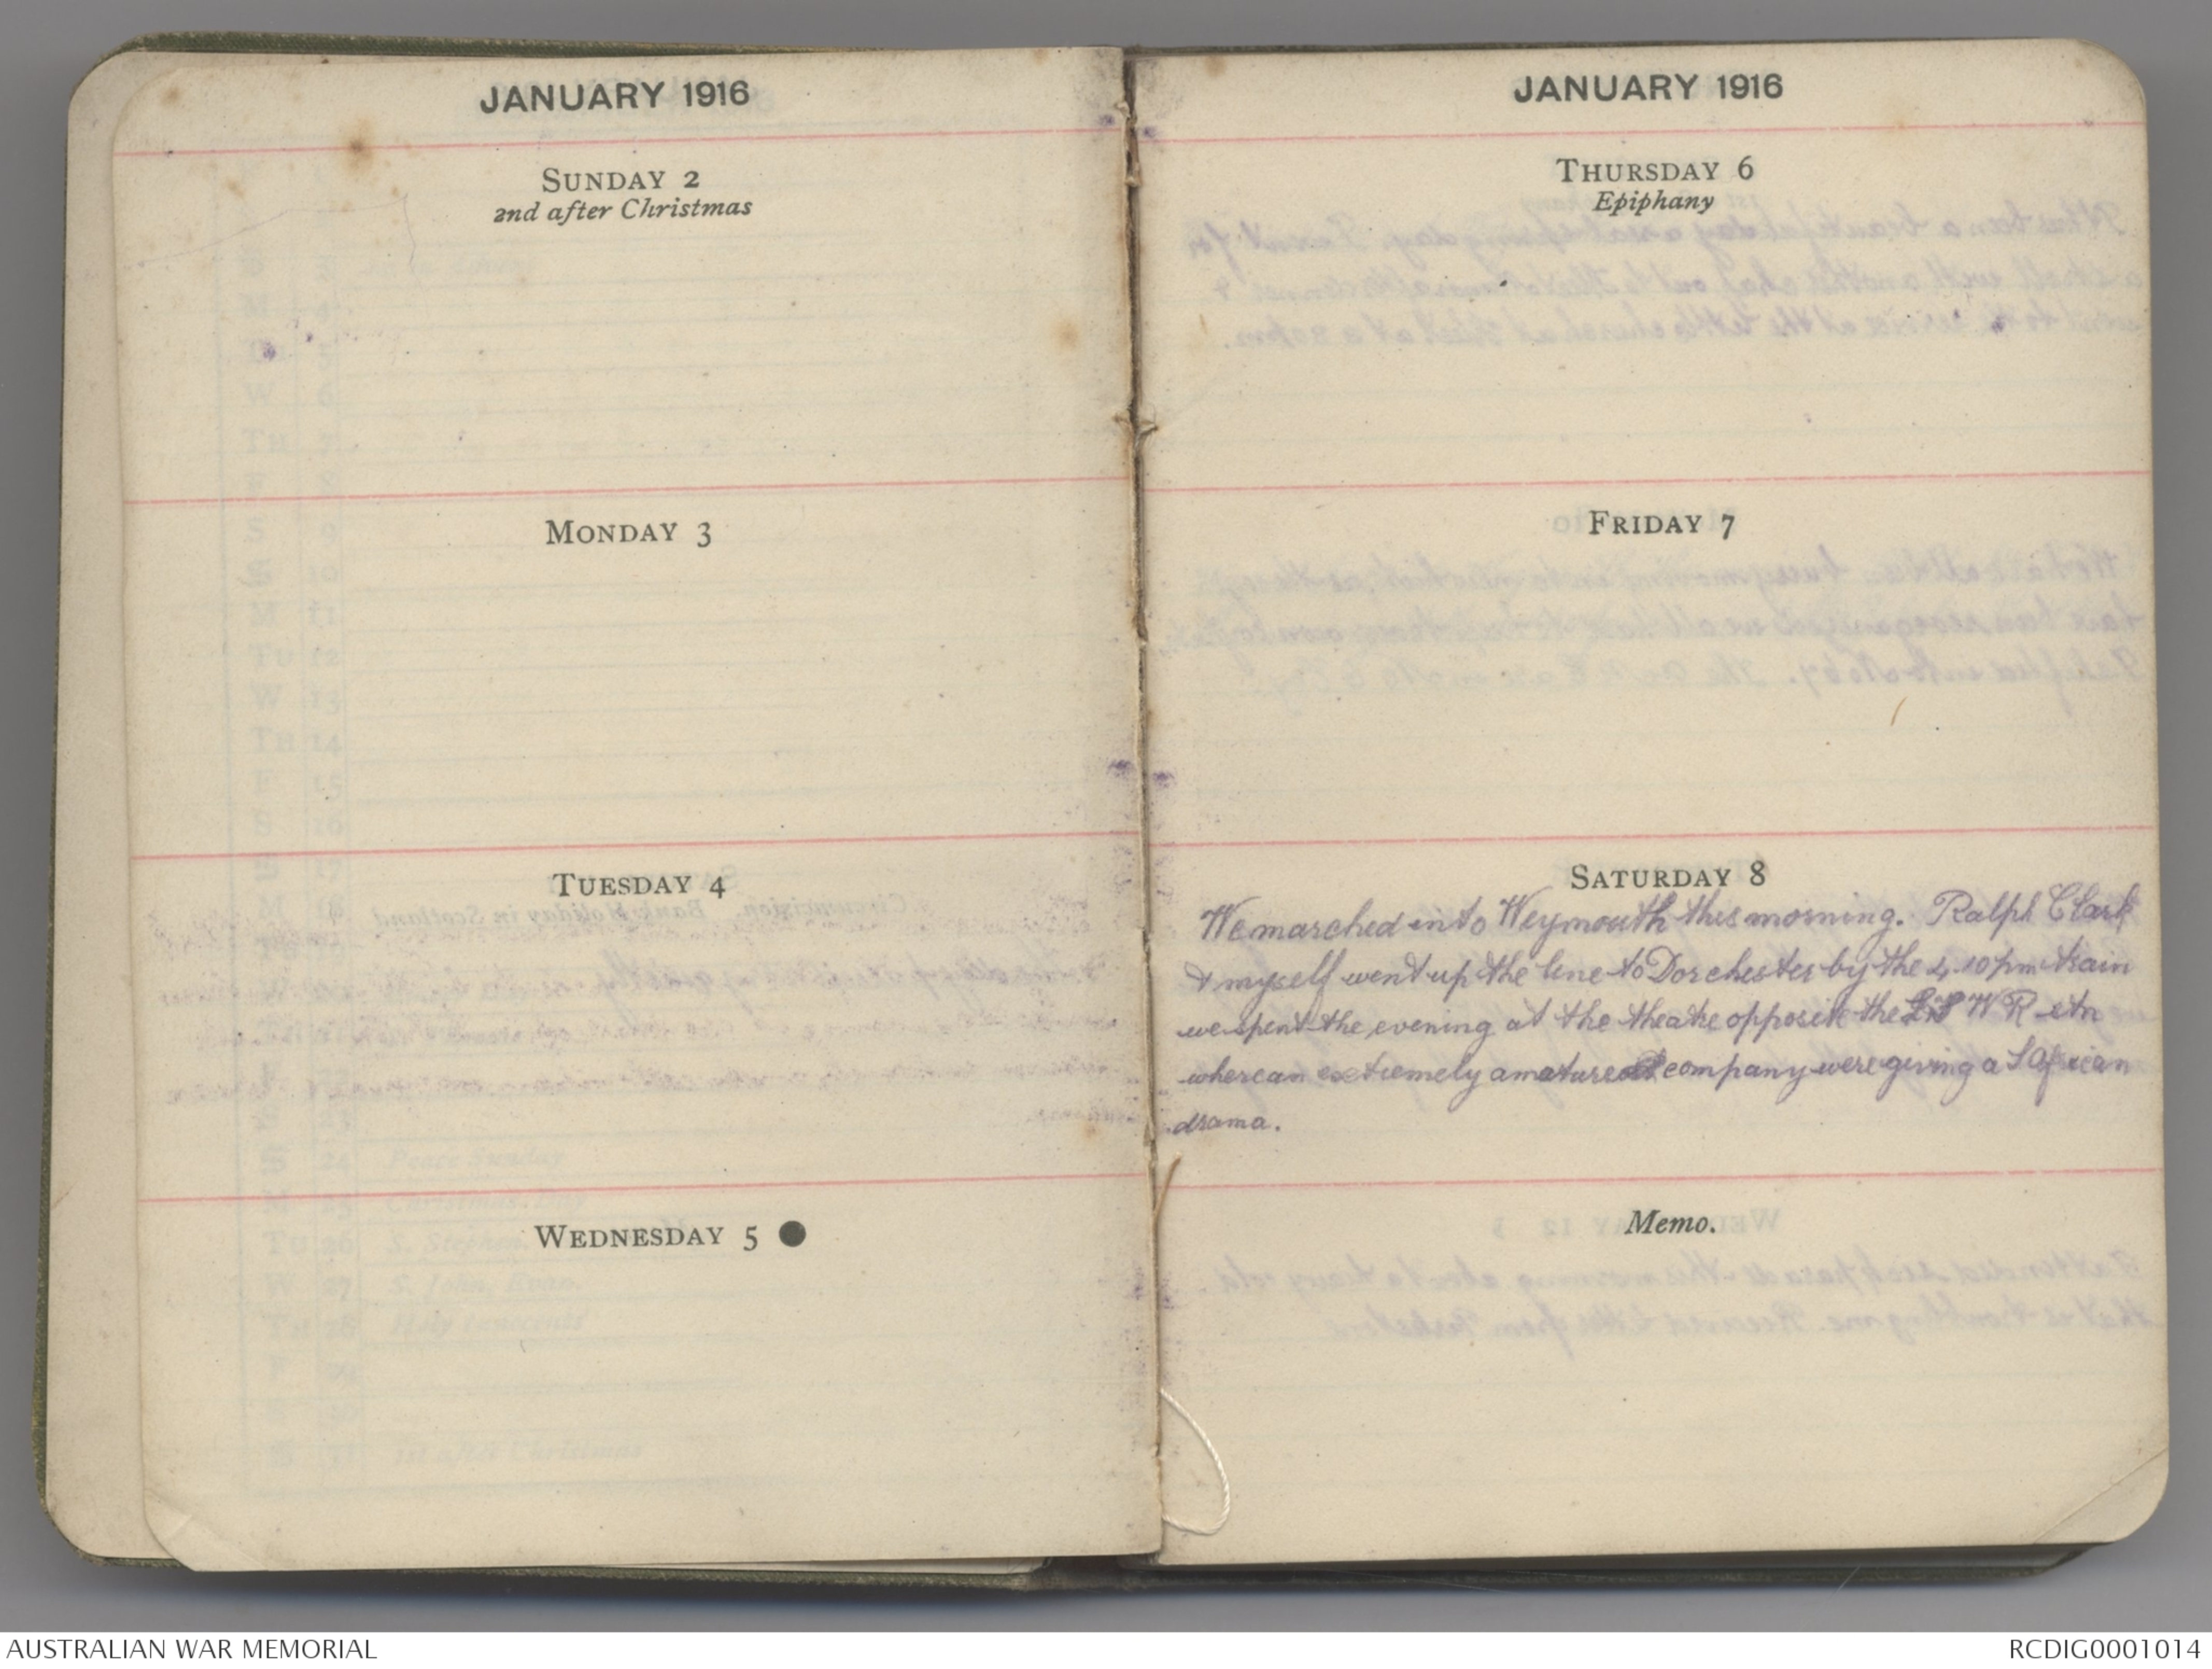 JANUARY 1916
SUNDAY 2
2nd after Christmas
MONDAY 3
TUESDAY 4
WEDNESDAY 5
JANUARY 1916
THURSDAY 6
Epiphany
FRIDAY 7
SATURDAY 8
We marched into Weymouth this morning. Ralph Clark
& myself went up the line to Dorchester by the 4.10 pm train
we spent the evening at the theatre opposite the W R stn
where an extremely amature company were giving a S African
drama.
Memo.
AUSTRALIAN WAR MEMORIAL
RCDIG0001014